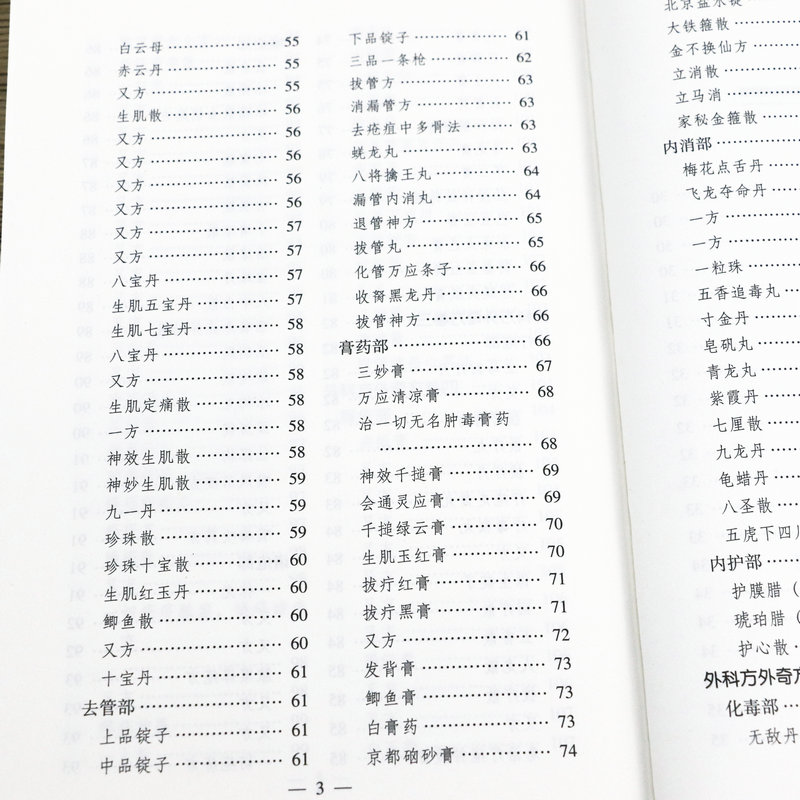 白云母 …… 55
赤云丹 …… 55
又方 …… 55
生肌散 …… 56
又方 …… 56
又方 …… 56
又方 …… 56
又方 …… 57
又方 …… 57
八宝丹 …… 57
生肌五宝丹 …… 57
生肌七宝丹 …… 58
八宝丹 …… 58
又方 …… 58
生肌定痛散 …… 58
一方 …… 58
神效生肌散 …… 58
神妙生肌散 …… 59
九一丹 …… 59
珍珠散 …… 59
珍珠十宝散 …… 60
生肌红玉丹 …… 60
鲫鱼散 …… 60
又方 …… 60
十宝丹 …… 61
去管部 …… 61
上品锭子 …… 61
中品锭子 …… 61
下品锭子 …… 61
三品一条枪 …… 62
拔管方 …… 63
消漏管方 …… 63
去疮疽中多骨法 …… 63
蜣龙丸 …… 63
八将擒王丸 …… 64
漏管内消丸 …… 64
退管神方 …… 65
拔管丸 …… 65
化管万应条子 …… 66
收胬黑龙丹 …… 66
拔管神方 …… 66
膏药部 …… 66
三妙膏 …… 67
万应清凉膏 …… 68
治一切无名肿毒膏药
…… 68
神效千搥膏 …… 69
会通灵应膏 …… 69
千搥绿云膏 …… 70
生肌玉红膏 …… 70
拔疔红膏 …… 71
拔疔黑膏 …… 71
又方 …… 72
发背膏 …… 73
鲫鱼膏 …… 73
白膏药 …… 73
京都硇砂膏 …… 74
— 3 —
大铁箍散 ……
金不换仙方 ……
立消散 ……
立马消 ……
家秘金箍散 ……
内消部 ……
梅花点舌丹 ……
飞龙夺命丹 ……
一方 ……
一方 ……
一粒珠 ……
五香追毒丸 ……
寸金丹 ……
皂矾丸 ……
青龙丸 ……
紫霞丹 ……
七厘散 ……
九龙丹 ……
龟蜡丹 ……
八圣散 ……
五虎下四
内护部 ……
护膜腊（
琥珀腊（
护心散 ……
外科方外奇方
化毒部 ……
无敌丹